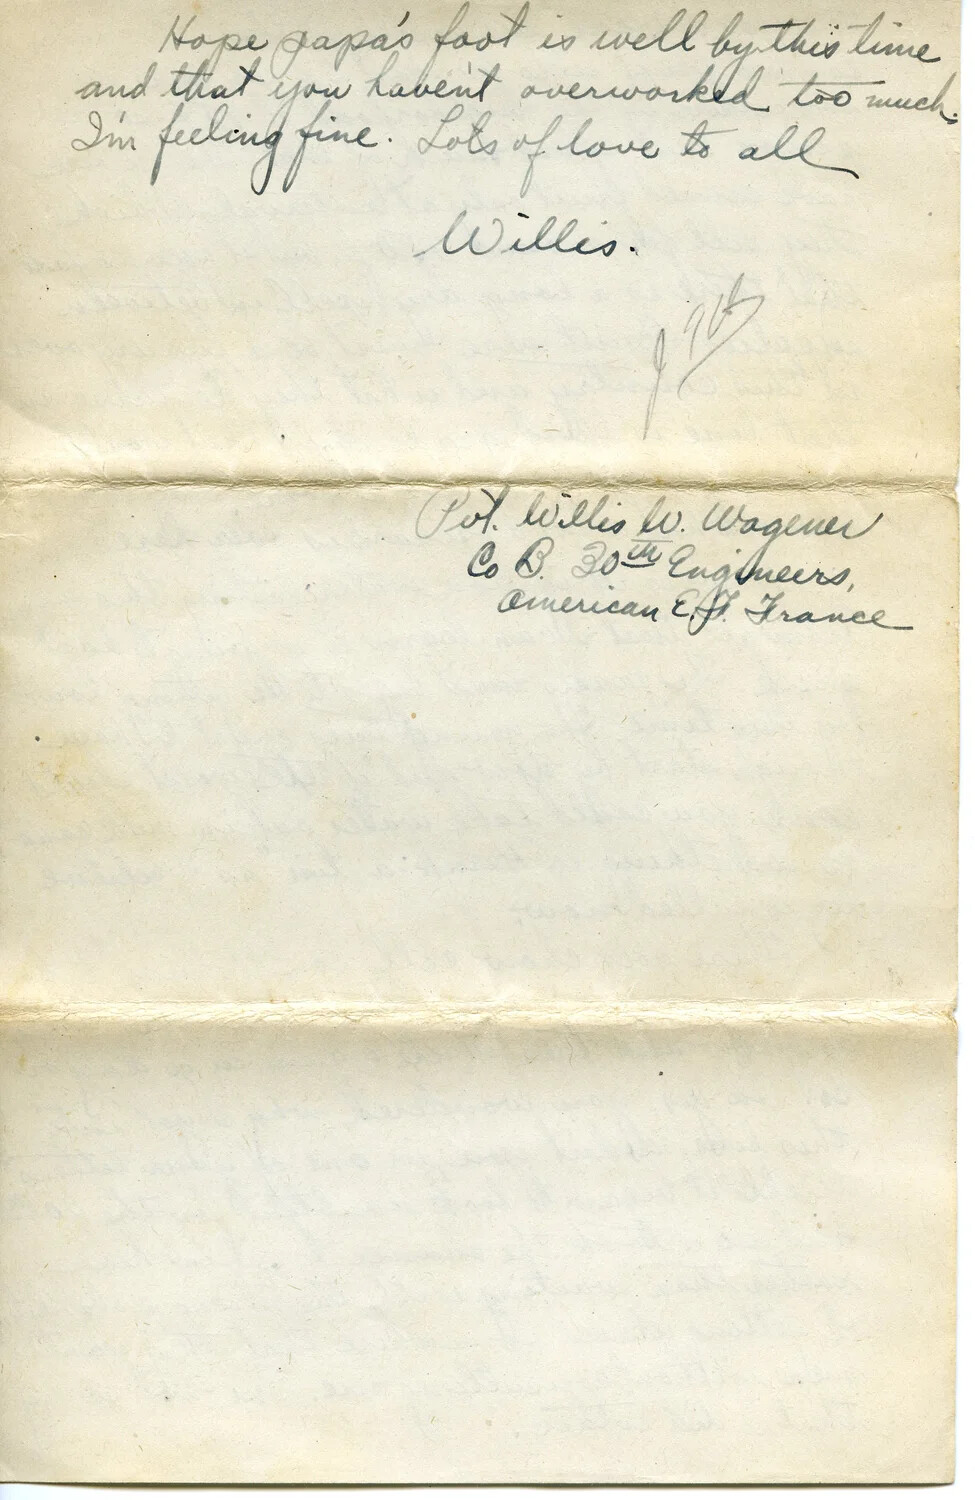 Hope papa's foot is well by this time
and that you haven't overworked too much.
I'm feeling fine. Lots of love to all
Willis.
Pvt. Willis W. Wagener
Co B. 30th Engineers,
American E. F. France